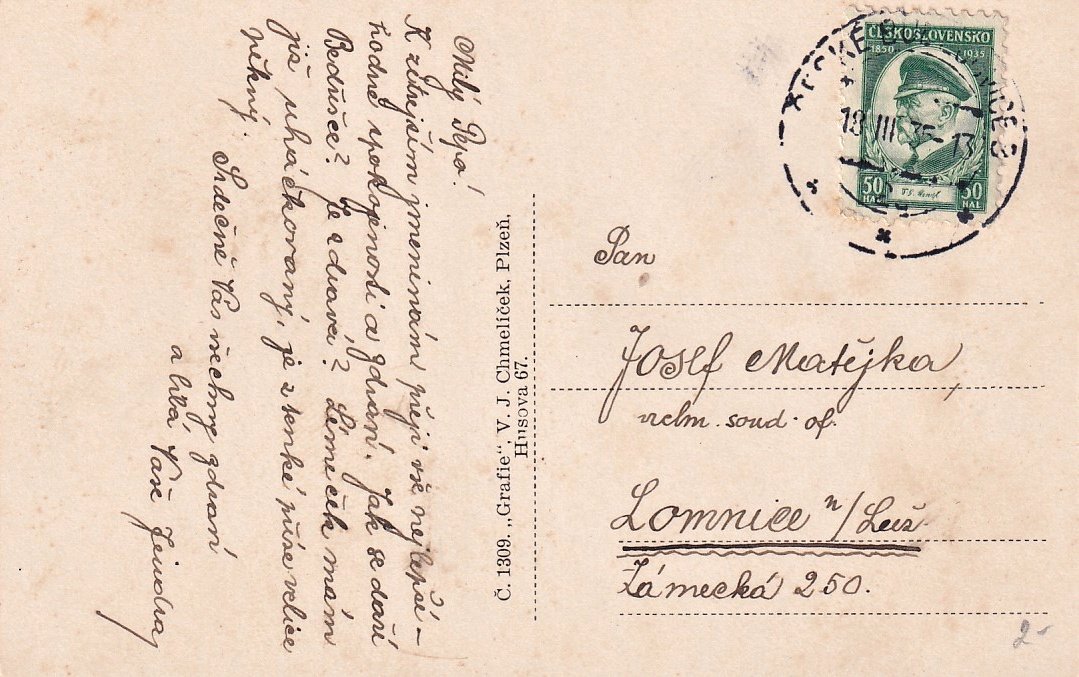 Milý Pepo!
K zítřejším jmeninám přeji vše nejlepší –
hodně spokojenosti a zdraví. Jak se daří
Bedřišce? Je zdravá? Límeček mám
již uháčkovaný, je z tenké příze velice
pěkný.
Srdečně Vás všechny zdraví
a líbá Vaše Jindra
Č. 1309. „Grafie“, V. J. Chmelíček, Plzeň,
Husova 67.
ČESKOSLOVENSKO
1850 1935
18 III 35 13
50 50
HAL HAL
Pan
Josef Matějka,
vrchm. soud. of.
Lomnice n/Luž
Zámecká 250.
2-